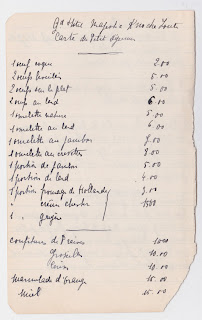 Gd Hôtel Majestic Knocke Zoute
Carte du Petit déjeuner
1 oeuf coque 2.00
2 oeufs brouillés 5.00
2 oeufs sur le plat 5.00
2 oeufs au lard 6.00
1 omelette nature 5.00
1 omelette au lard 6.00
1 omelette au jambon 7.00
1 omelette aux crevettes 8.00
1 portion de jambon 5.00
1 portion de lard 4.00
1 portion fromage de Hollande 3.00
" " crème 1500
1 " gruyère
confiture de
Groseilles 10.00
Cerises 10.00
marmelade d'orange 15.00
Miel 15.00